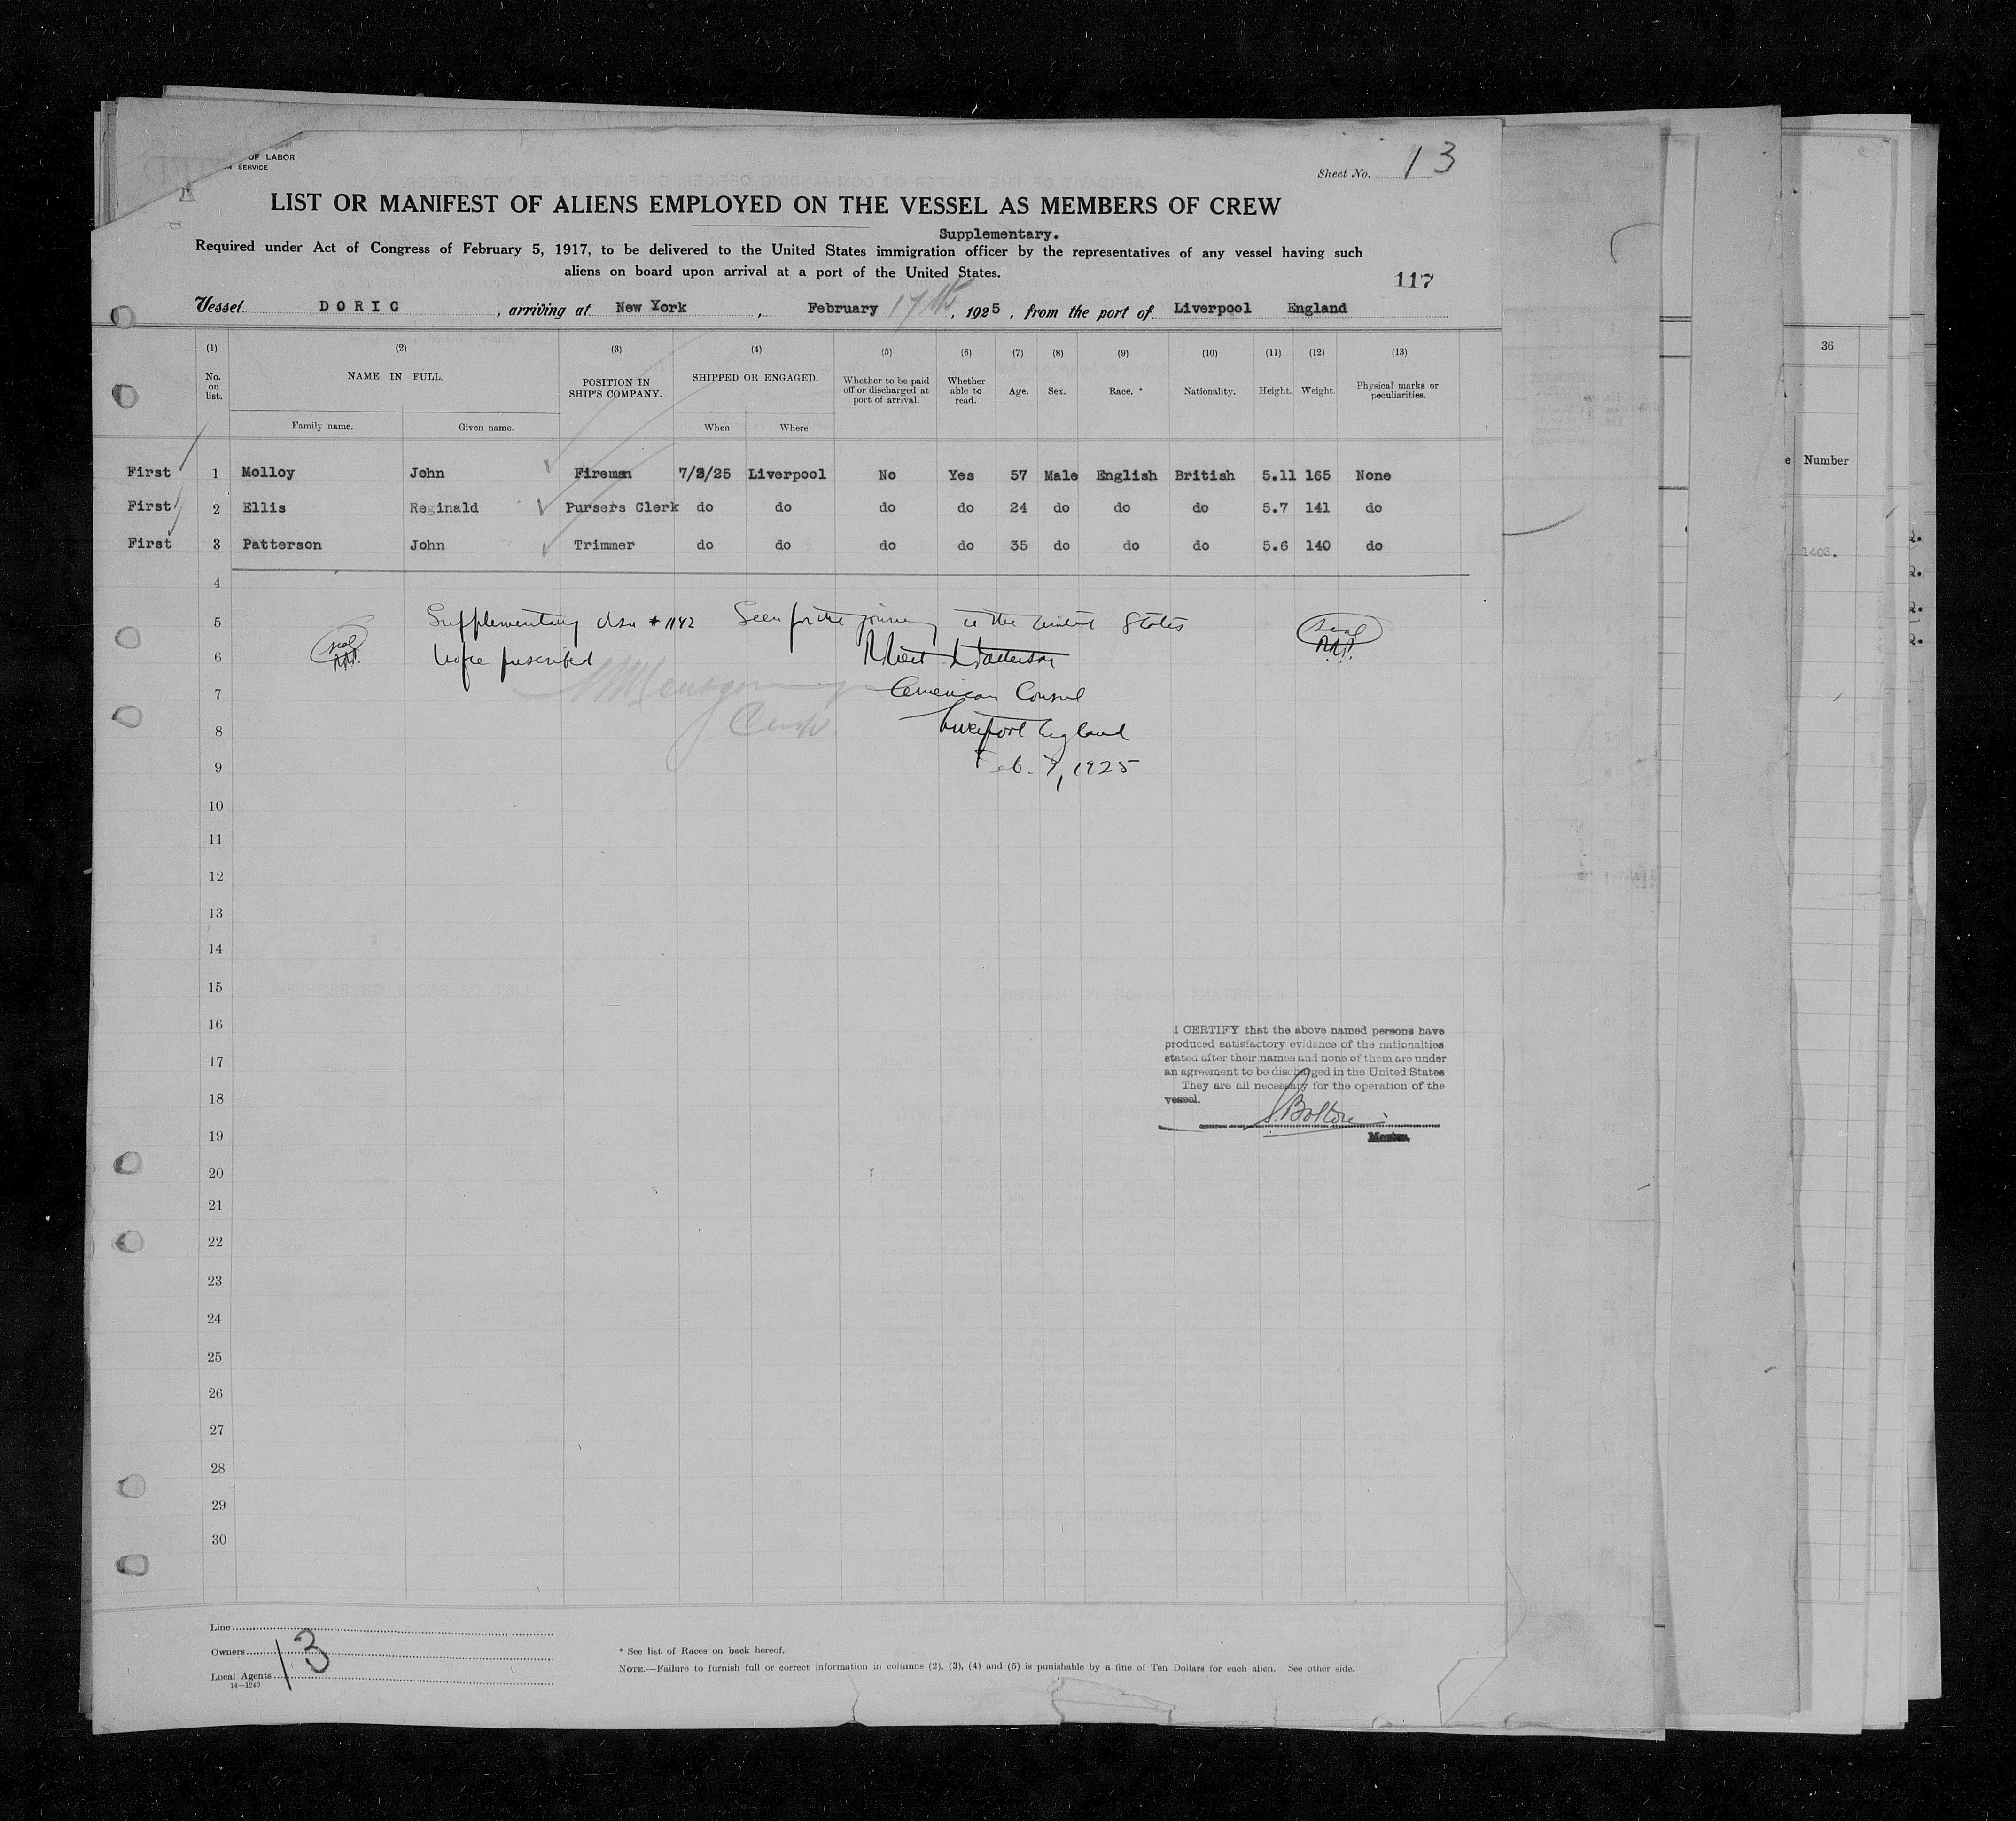 OF LABOR
SERVICE
Sheet No. 13
LIST OR MANIFEST OF ALIENS EMPLOYED ON THE VESSEL AS MEMBERS OF CREW
Supplementary.
Required under Act of Congress of February 5, 1917, to be delivered to the United States immigration officer by the representatives of any vessel having such
aliens on board upon arrival at a port of the United States.
117
Vessel DORIC, arriving at New York, February 17th, 1925, from the port of Liverpool England
(1) (2) (3) (4) (5) (6) (7) (8) (9) (10) (11) (12) (13)
No. on list. NAME IN FULL. POSITION IN SHIP'S COMPANY. SHIPPED OR ENGAGED. Whether to be paid off or discharged at port of arrival. Whether able to read. Age. Sex. Race. * Nationality. Height. Weight. Physical marks or peculiarities.
Family name. Given name. When Where
First 1 Molloy John Fireman 7/2/25 Liverpool No Yes 57 Male English British 5.11 165 None
First 2 Ellis Reginald Pursers Clerk do do do do 24 do do do 5.7 141 do
First 3 Patterson John Trimmer do do do do 35 do do do 5.6 140 do
4
5 Supplementary Visa # 1142 Seen for the journey to the United States seal
6 seal No fee prescribed
7 American Consul
8 Liverpool England
9 Feb. 7, 1925
10
11
12
13
14
15
16
17
18
19
20
21
22
23
24
25
26
27
28
29
30
I CERTIFY that the above named persons have
produced satisfactory evidence of the nationalties
stated after their names and none of them are under
an agreement to be discharged in the United States
They are all necessary for the operation of the
vessel.
S. Bolton
Master.
Line
Owners
Local Agents
13
14—1240
* See list of Races on back hereof.
NOTE.—Failure to furnish full or correct information in columns (2), (3), (4) and (5) is punishable by a fine of Ten Dollars for each alien. See other side.
36
Number
1403.
2.
2.
2.
2.